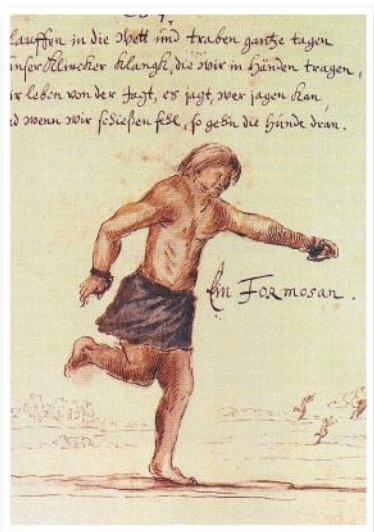 lauffen in die Wett und traben gantze tagen
unser Klincker klangh, die wir in Händen tragen,
ir leben von der Jagt, es jagt, wer jagen kan,
d wenn wir schießen fehl, so gehn die Hünde dran.
Ein Formosan.